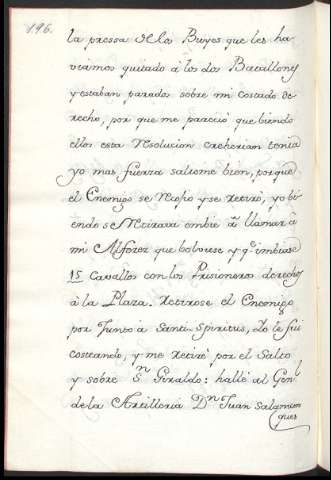 196.
la pressa de los Bueyes que les ha
viamos quitado à los dos Batallones
y estaban parados sobre mi costado de
recho, por que me pareció que biendo
ellos esta resolucion creherian tenia
yo mas fuerza saliome bien, porque
el Enemigo se Mofio y se retiró, yo bi
endo se Retirava embie à llamar à
mi Alferez que bolviese y q.e imbiase
15 Cavallos con los Prisioneros derechos
à la Plaza. Retirose el Enemigo
por Junto à Santi Spiritus, Io le fui
costeando, y me retiré por el Salto
y sobre S.n Giraldo: hallé al Gen.l
de la Artilleria D.n Juan Salamon
ques